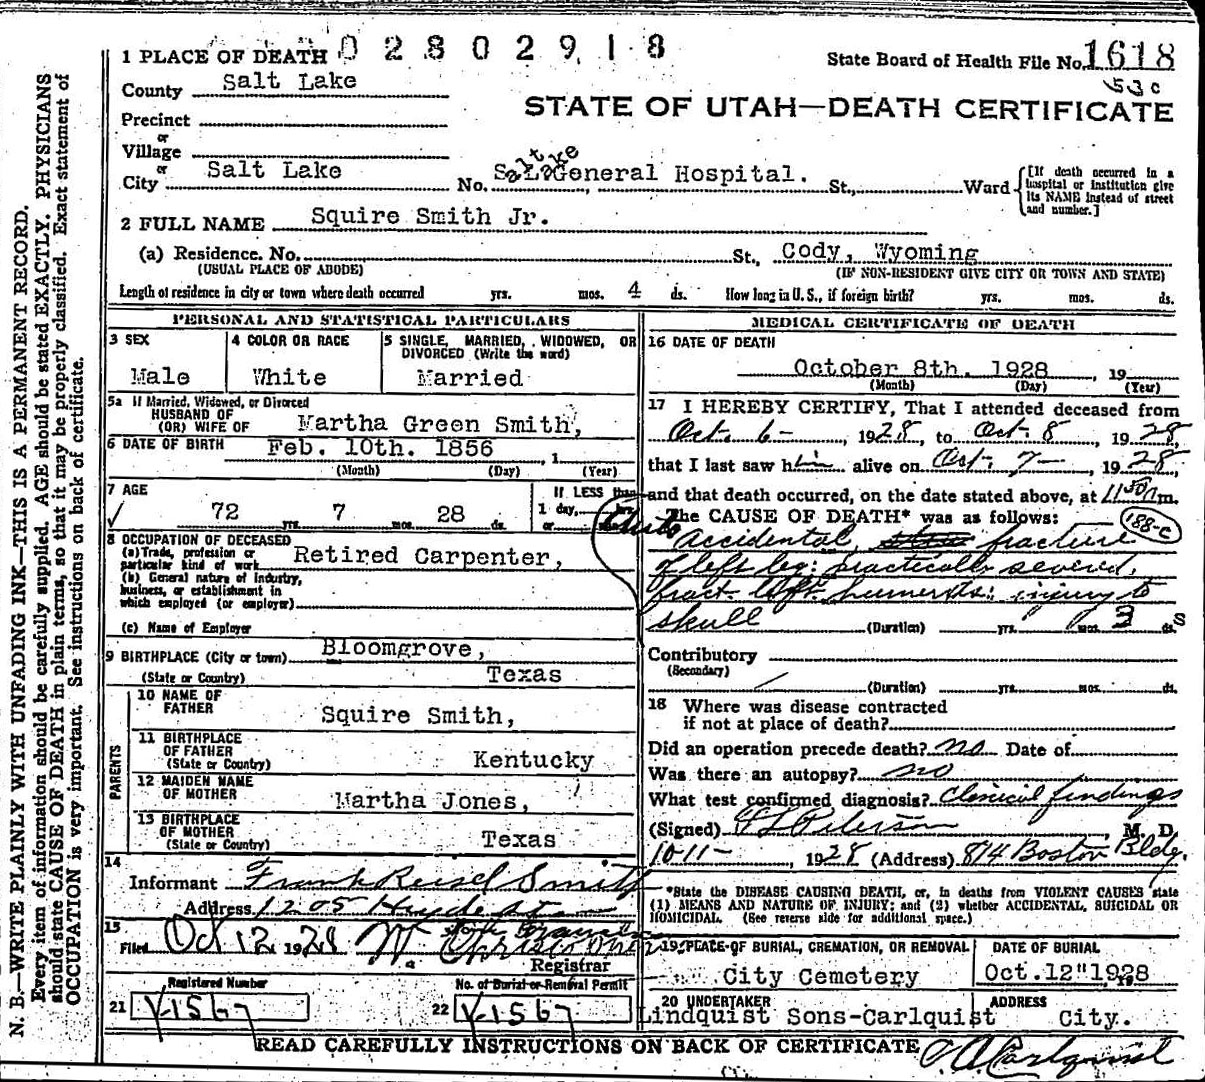 1 PLACE OF DEATH 0 2 8 0 2 9 1 8
State Board of Health File No. 1618
53c
County Salt Lake
STATE OF UTAH—DEATH CERTIFICATE
Precinct
or
Village
or
City Salt Lake No. S.L. Salt Lake General Hospital. St., Ward
[If death occurred in a hospital or institution give its NAME instead of street and number.]
2 FULL NAME Squire Smith Jr.
(a) Residence. No. St., Cody, Wyoming
(USUAL PLACE OF ABODE) (IF NON-RESIDENT GIVE CITY OR TOWN AND STATE)
Length of residence in city or town where death occurred yrs. mos. 4 ds. How long in U. S., if foreign birth? yrs. mos. ds.
PERSONAL AND STATISTICAL PARTICULARS
3 SEX
Male
4 COLOR OR RACE
White
5 SINGLE, MARRIED, WIDOWED, OR
DIVORCED (Write the word)
Married
5a If Married, Widowed, or Divorced
HUSBAND OF
(OR) WIFE OF Martha Green Smith,
6 DATE OF BIRTH Feb. 10th. 1856 , 1
(Month) (Day) (Year)
7 AGE
72 yrs. 7 mos. 28 ds.
If LESS than
1 day, hrs.
or
8 OCCUPATION OF DECEASED
(a) Trade, profession or
particular kind of work Retired Carpenter,
(b) General nature of industry,
business, or establishment in
which employed (or employer)
(c) Name of Employer
9 BIRTHPLACE (City or town) Bloomgrove,
(State or Country) Texas
PARENTS
10 NAME OF
FATHER Squire Smith,
11 BIRTHPLACE
OF FATHER
(State or Country) Kentucky
12 MAIDEN NAME
OF MOTHER Martha Jones,
13 BIRTHPLACE
OF MOTHER
(State or Country) Texas
14
Informant Frank Smith
Address 1205 Hyde St
San Francisco
15
Filed Oct 12 1928
Registrar
Registered Number
21 X-1567
No. of Burial or Removal Permit
22 X-1567
MEDICAL CERTIFICATE OF DEATH
16 DATE OF DEATH
October 8th. 1928 , 19
(Month) (Day) (Year)
17 I HEREBY CERTIFY, That I attended deceased from
Oct. 6- , 1928, to Oct. 8 , 1928,
that I last saw him alive on Oct. 7- , 1928,
and that death occurred, on the date stated above, at 11 50 m.
The CAUSE OF DEATH* was as follows: 188-c
Auto
Accidental, fracture
of left leg: practically severed,
fract. left humerus: injury to
skull (Duration) yrs. mos. 3 ds
Contributory
(Secondary)
(Duration) yrs. mos. ds.
18 Where was disease contracted
if not at place of death?
Did an operation precede death? no Date of
Was there an autopsy? no
What test confirmed diagnosis? Clinical findings
(Signed) Peterson , M. D.
10-11- , 1928 (Address) 814 Boston Bldg.
*State the DISEASE CAUSING DEATH, or, in deaths from VIOLENT CAUSES state
(1) MEANS AND NATURE OF INJURY; and (2) whether ACCIDENTAL, SUICIDAL OR
HOMICIDAL. (See reverse side for additional space.)
19 PLACE OF BURIAL, CREMATION, OR REMOVAL
City Cemetery
DATE OF BURIAL
Oct. 12" 1928
20 UNDERTAKER
Lindquist Sons-Carlquist
ADDRESS
City.
READ CAREFULLY INSTRUCTIONS ON BACK OF CERTIFICATE
Carlquist
N. B.—WRITE PLAINLY WITH UNFADING INK—THIS IS A PERMANENT RECORD.
Every item of information should be carefully supplied. AGE should be stated EXACTLY. PHYSICIANS
should state CAUSE OF DEATH in plain terms, so that it may be properly classified. Exact statement of
OCCUPATION is very important. See instructions on back of certificate.